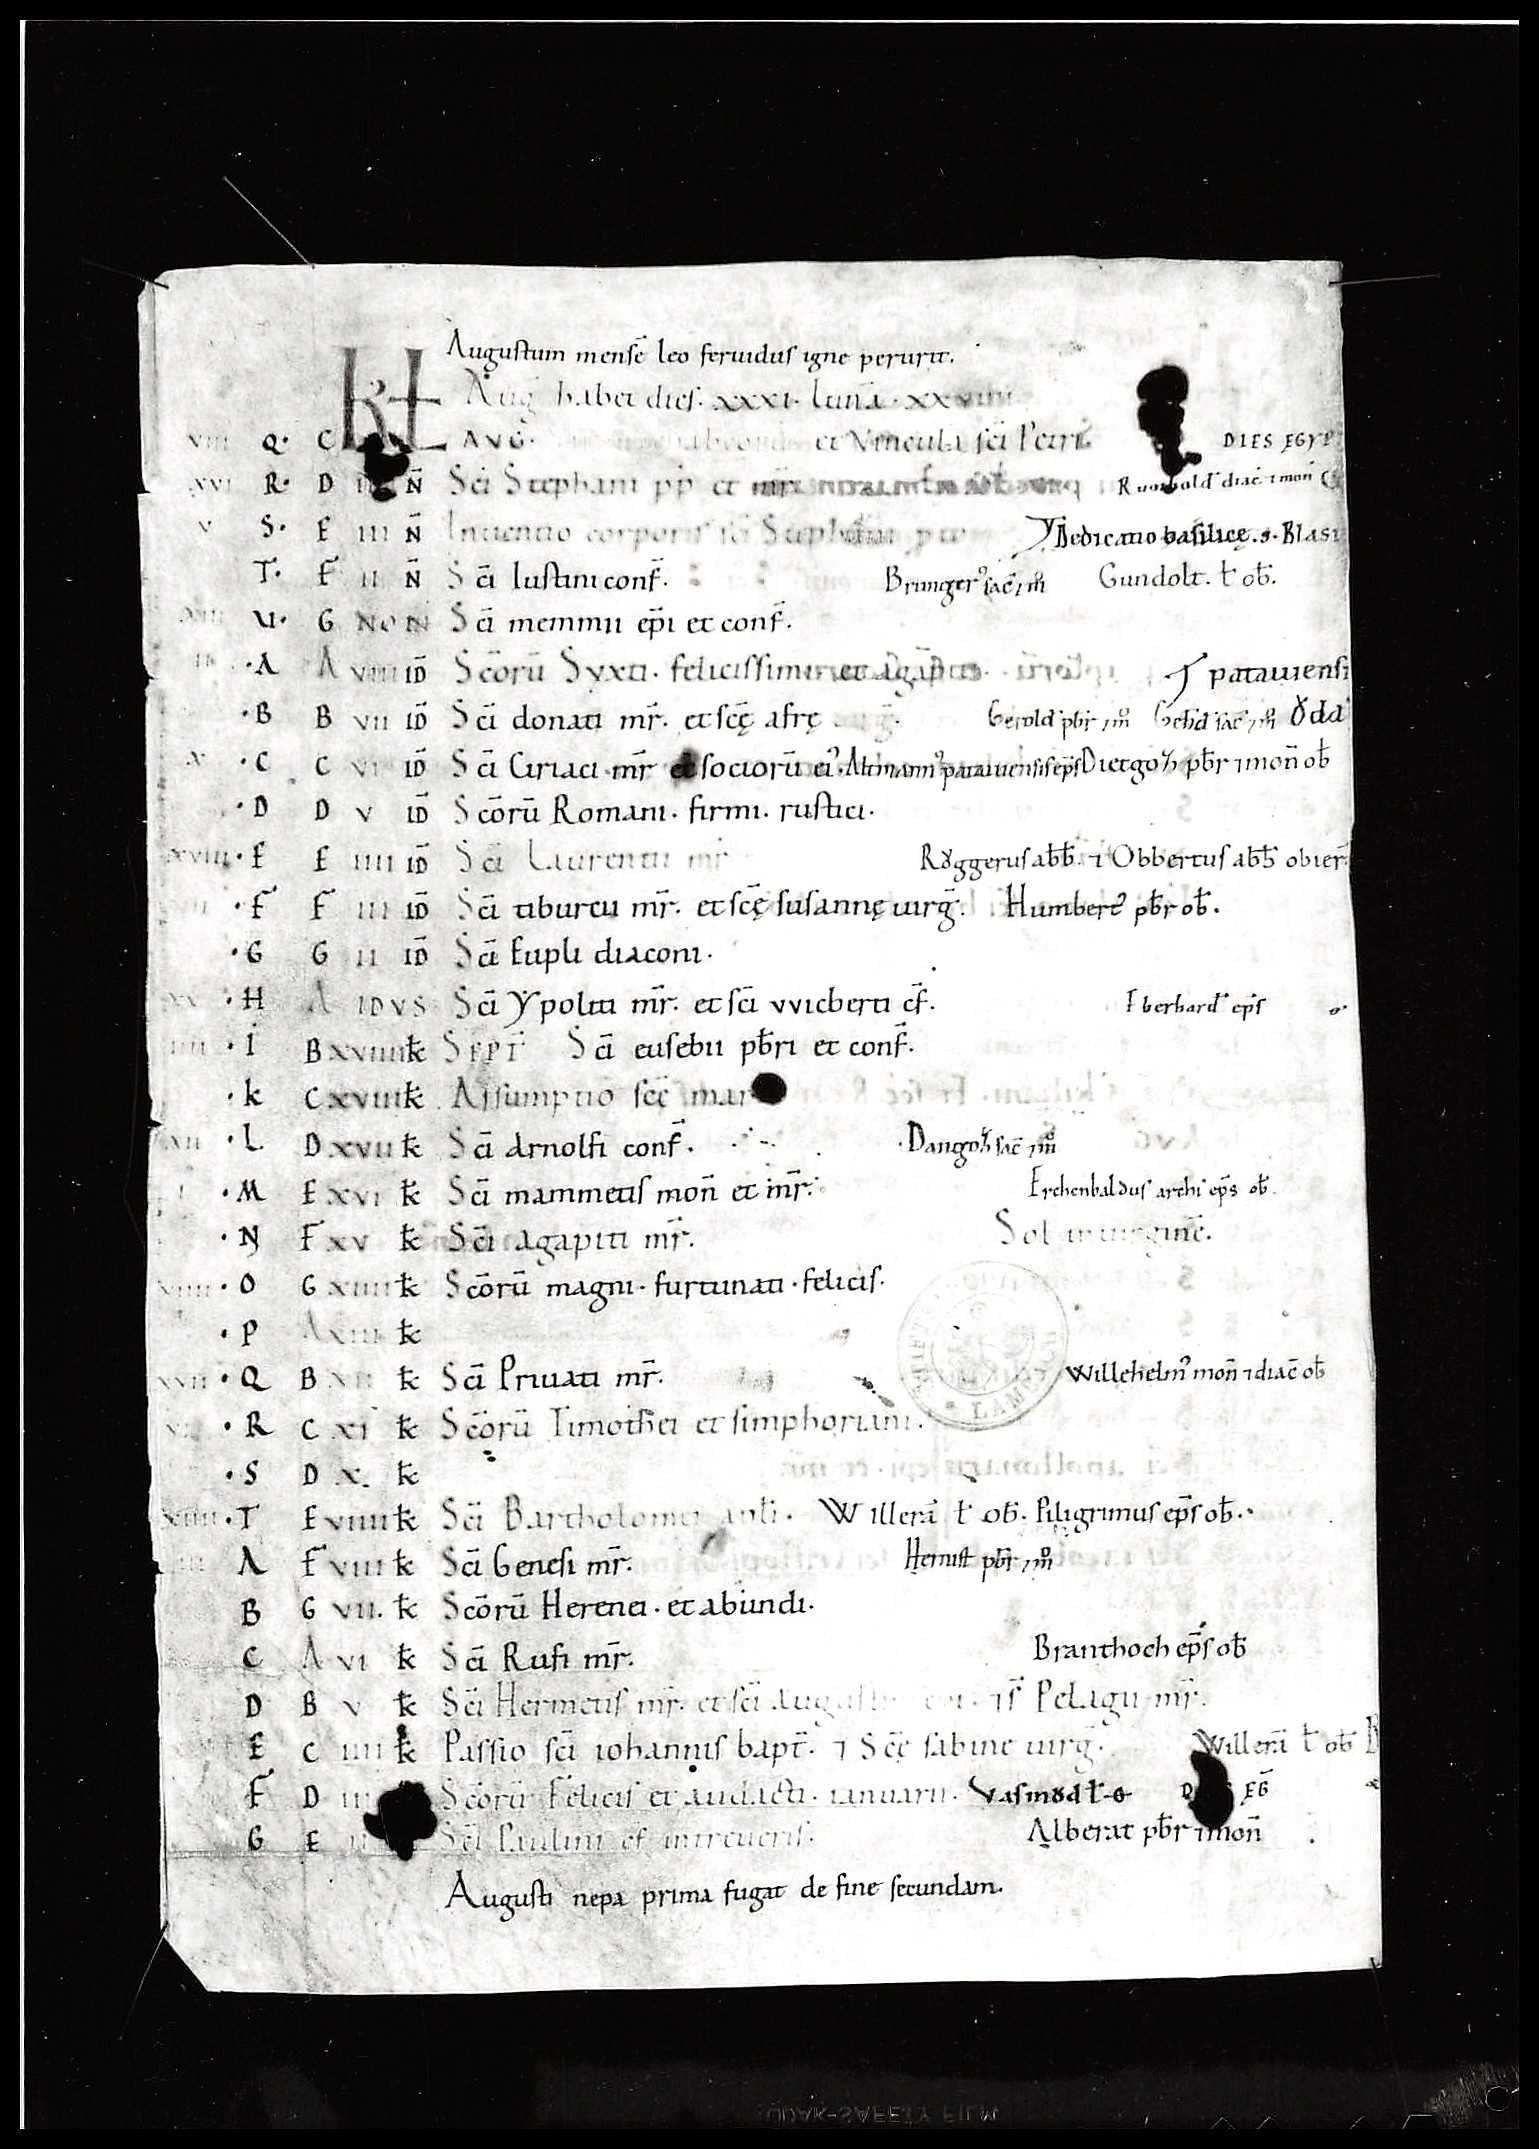 Augustum mensē leo feruidus igne perurit.
KL Aug habet dies. xxxi. Luna. xx
viii Q. C AUG. et Vincula scī Petri. DIES EGYP
xvi R. D N̄ Scī Stephani pp̄ et mr̄ diac̄ ⁊ mon̄
v S. E iii N̄ Inuentio corporis scī Stephani Dedicatio basilicę .s. Blasi
T. F ii N̄ Scī Iustini conf̄. Brunger᾿ sac̄ ⁊ m̊ Gundolt. ł ob̄.
U. G NON Scī memmii ep̄i et conf̄.
.A A viii ID̄ Scōrū Syxti. felicissimi et agapiti patauiensi
.B B vii ID̄ Scī donati mr̄. et scę afrę Gerold pbr̄ ⁊ m̊ Geb̄d sac̄ ⁊ m̊
x .C C vi ID̄ Scī Ciriaci mr̄ et sociorū ei᾿. Altmann᾿ patauiensis ep̄s Dietgoz pb̄r ⁊ mon̄ ob̄
.D D v ID̄ Scōrū Romani. firmi. rustici.
xviii .E E iiii ID̄ Scī Laurentii mr̄ Rŏggerus abb̄. ⁊ Obbertus abb̄ obier̄
.F F iii ID̄ Scī tiburtii mr̄. et scę susannę uirḡ. Humbert᾿ pb̄r ob̄.
.G G ii ID̄ Scī Eupli diaconi.
.H A IDVS Scī Ypoliti mr̄. et scī vvicberti cf̄. Eberhard᾿ ep̄s
iiii .I B xviiii k̄ SEPT̄ Scī eusebii pb̄ri et conf̄.
.K C xviii k̄ Assumptio scę mar
xii .L D xvii k̄ Scī Arnolfi conf̄. Dangoz sac̄ ⁊ m̊
i .M E xvi k̄ Scī mammetis mon̄ et mr̄. Erchenbaldus archi ep̄s ob̄.
.N F xv k̄ Scī agapiti mr̄. Sol in uirginē.
.O G xiiii k̄ Scōrū magni. furtunati. felicis.
.P A xiii k̄
xvii .Q B xii k̄ Scī Priuati mr̄. Willehelm᾿ mon̄ ⁊ diac̄ ob̄
.R C xi k̄ Scōrū Timothei et simphoriani.
.S D x. k̄
xiiii .T E viiii k̄ Scī Bartholomei apl̄i. Willerā ł ob̄. Piligrimus ep̄s ob̄.
A F viii k̄ Scī Genesi mr̄. Hernist pb̄r ⁊ m̊
B G vii. k̄ Scōrū Herenei. et abundi.
C A vi k̄ Scī Rufi mr̄. Branthoch ep̄s ob̄
D B v k̄ Scī Hermetis mr̄. et scī Augustini ⁊ s̄ Pelagii mr̄.
E C iiii k̄ Passio scī iohannis bapt̄. ⁊ Scę sabine uirḡ. Willerā ł ob̄
F D iii Scōrū Felicis et audacti. ianuarii. Vasmŏd ł EḠ
G E ii Scī Paulini cf̄ intreueris. Alberat pb̄r ⁊ mon̄
Augusti nepa prima fugat de fine secundam.
LAMB